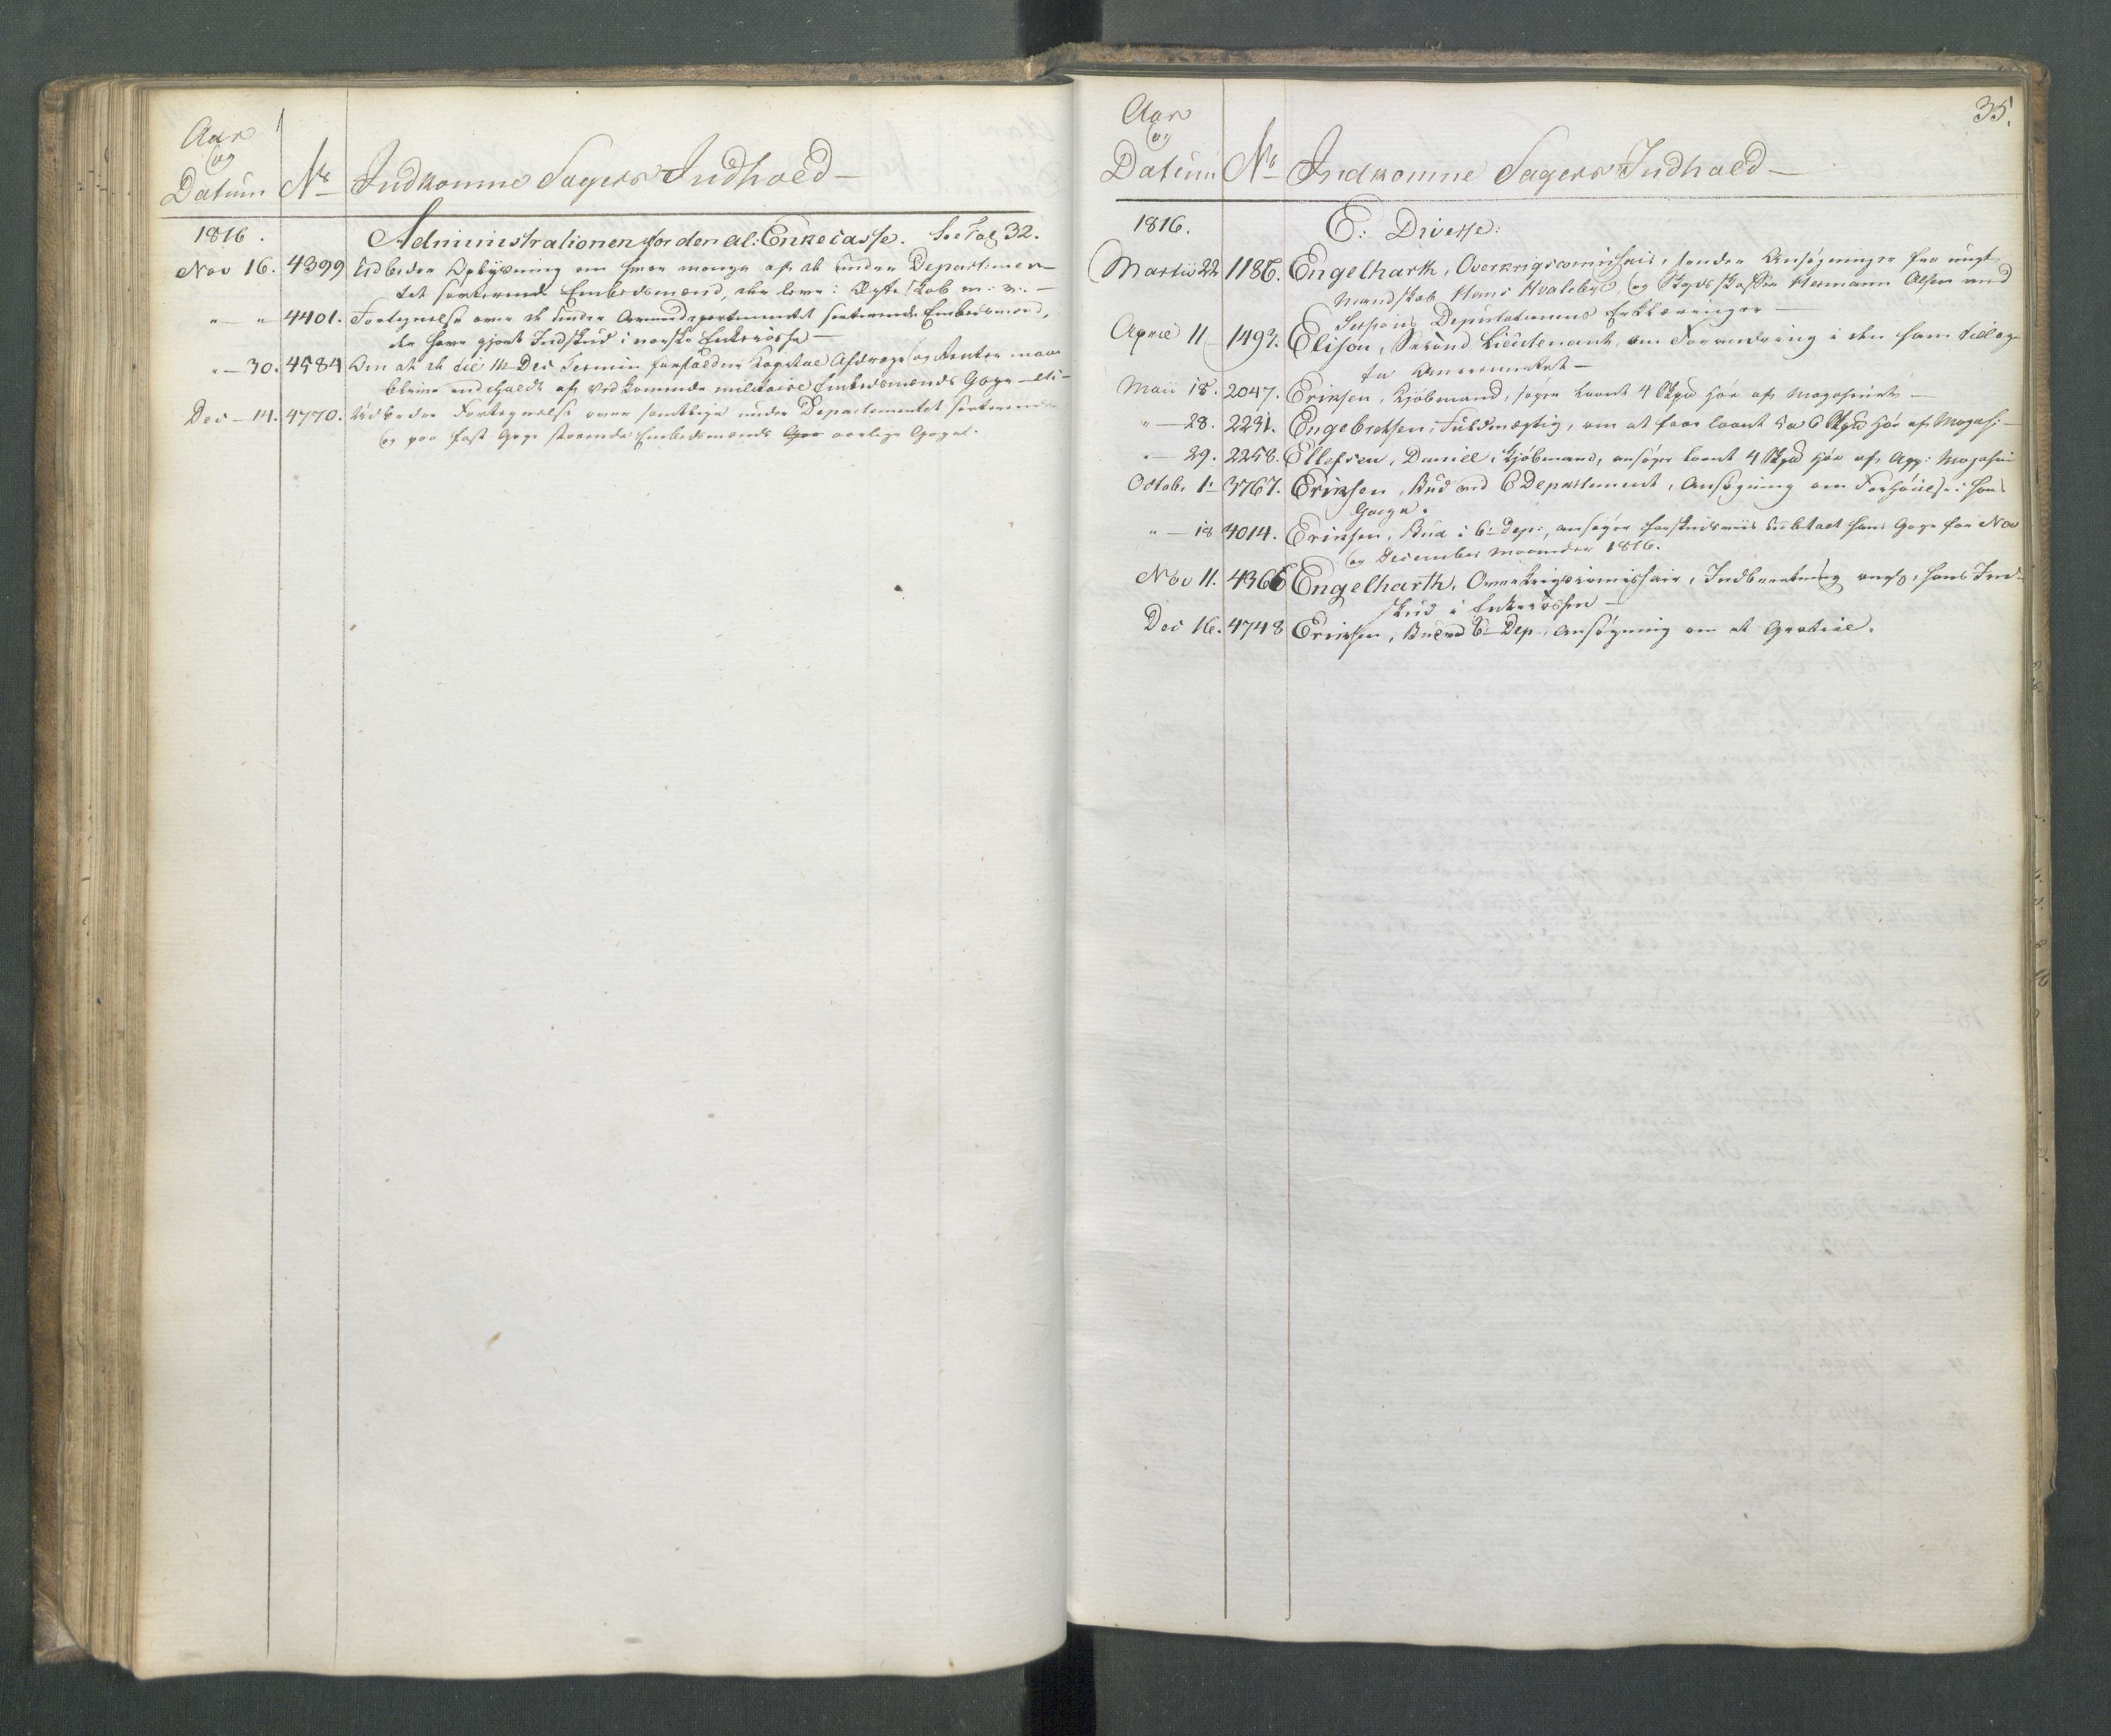 Aar
og
Datum No Indkomne Sagers Indhold -
1816. Administrationen for den al: Enkecasse. See Fol 32.
Nov 16. 4399 Udbeder Oplysning om hvor mange af de under Departemen-
tet sorterende Embedsmænd, der leve i Ægteskab m: v: -
" - " 4401. Fortegnelse over de under Armedepartementet sorterende Embedsmænd,
der have gjort Indskud i norske Enkecasse -
" - 30. 4584 Om at de til 11te Dec Termin forfaldne Kapital Afdrage og Renter maae
blive indeholdt af vedkommende militaire Embedsmænds Gage
Dec - 14. 4770. Udbeder Fortegnelse over samtlige under Departementet sorterende
og paa fast Gage staaende Embedsmænds aarlige Gager.
35.
Aar
og
Datum No Indkomne Sagers Indhold -
1816. E: Diverse:
Martii 22 1186. Engelharth, Overkrigscommissair, sender Ansøgninger fra ungt
Mandskab Hans Hvalebye, og Skydsskaffer Hermann Olsen med
Sessions Deputationens Erklæringer -
April 11 - 1493. Elison, Second Lieutenant, om Forandring i den ham tillag-
te Anciennitet -
Maii 18. 2047. Eriksen, Kjøbmand, søger laant 4 Skpd Høe af Magasinet -
" - 28. 2231. Engebretsen, Fuldmægtig, om at faae laant 5 a 6 Skpd Høe af Magas: -
" - 29. 2258. Ellefsen, Daniel, Kjøbmand, ansøger laant 4 Skpd Høe af Agg: Magasin
Octobr 1 - 3767. Eriksen, Bud ved 6 Departement, Ansøgning om Forhøielse i hans
Gage.
" - 18 4014. Eriksen, Bud i 6te Dep:, ansøger forskudsviis udbetalt hans Gage for Nov
og December Maaneder 1816.
Nov 11. 4366 Engelharth, Overkrigscommissair, Indberetning ang: hans Ind-
skud i Enkecassen -
Dec 16. 4748 Eriksen, Bud ved 6te Dep, Ansøgning om et Gratial.